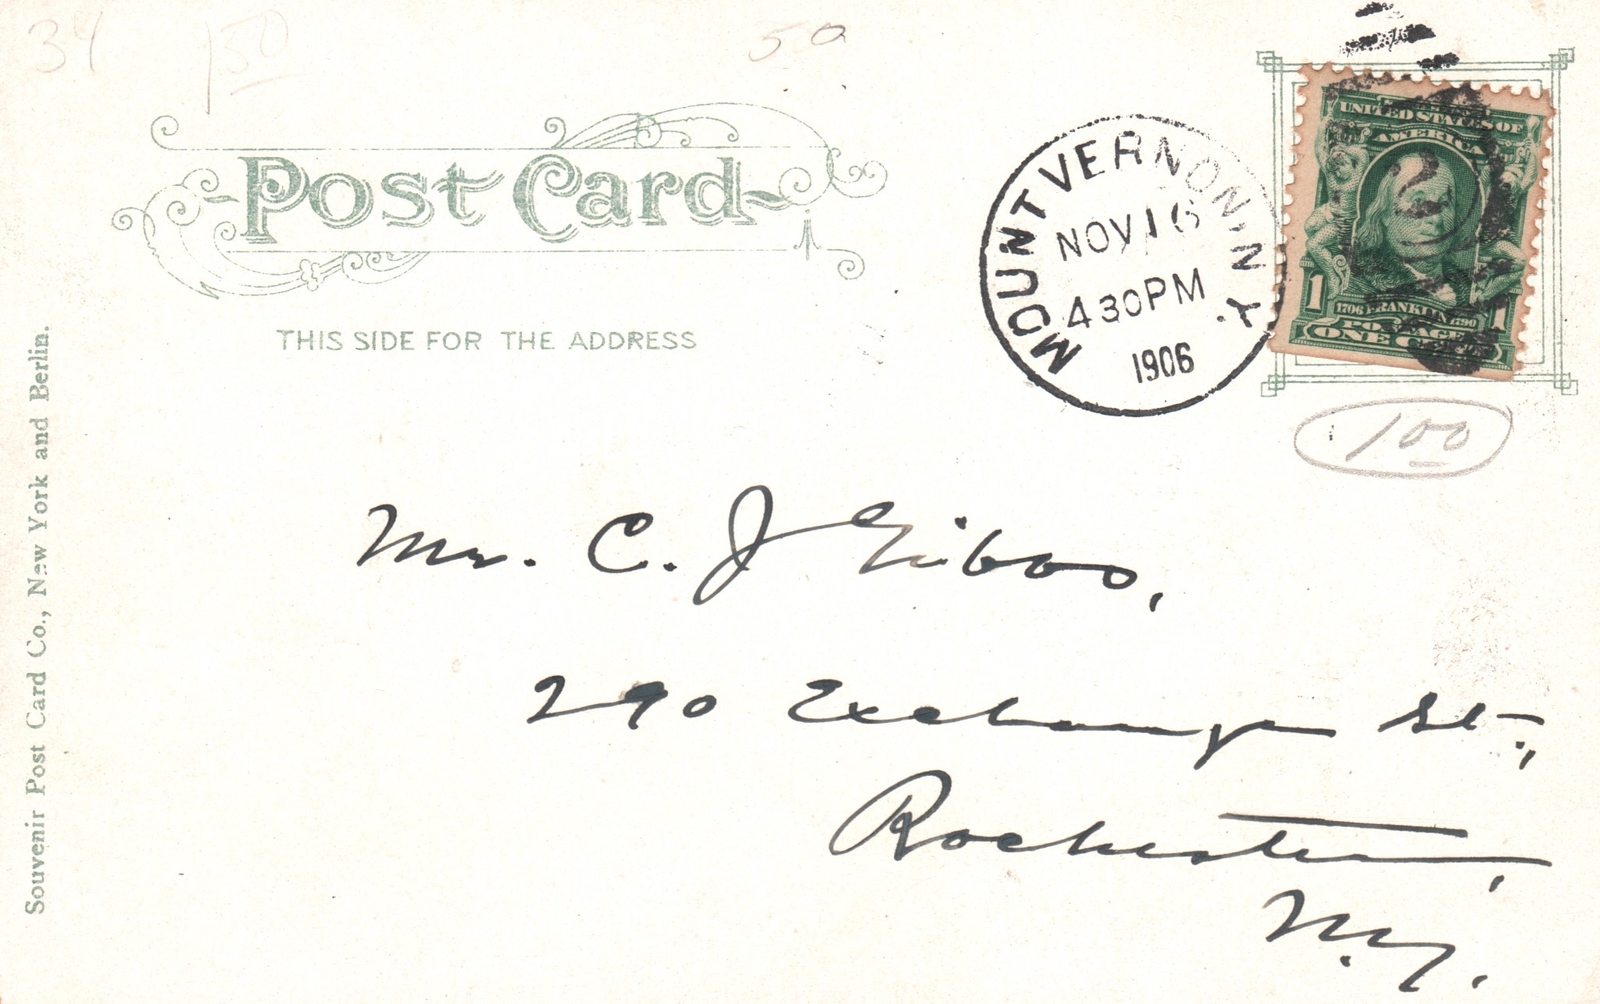 34
1 50
50
Post Card
THIS SIDE FOR THE ADDRESS
MOUNT VERNON, N.Y.
NOV 16
4 30 PM
1906
UNITED STATES OF
AMERICA
1 1706 FRANKLIN 1790 1
POSTAGE
ONE CENT
1 00
Mr. C. J Gibbs,
290 Exchange St.,
Rochester,
N.Y.
Souvenir Post Card Co., New York and Berlin.